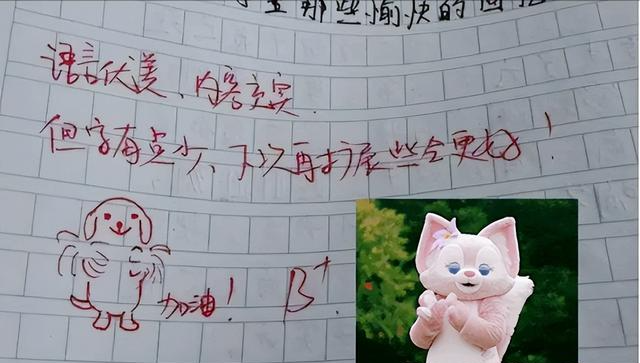 那些愉快的回
语言优美、内容充实.
但字有点少、下次再扩展些会更好！
加油！ B+